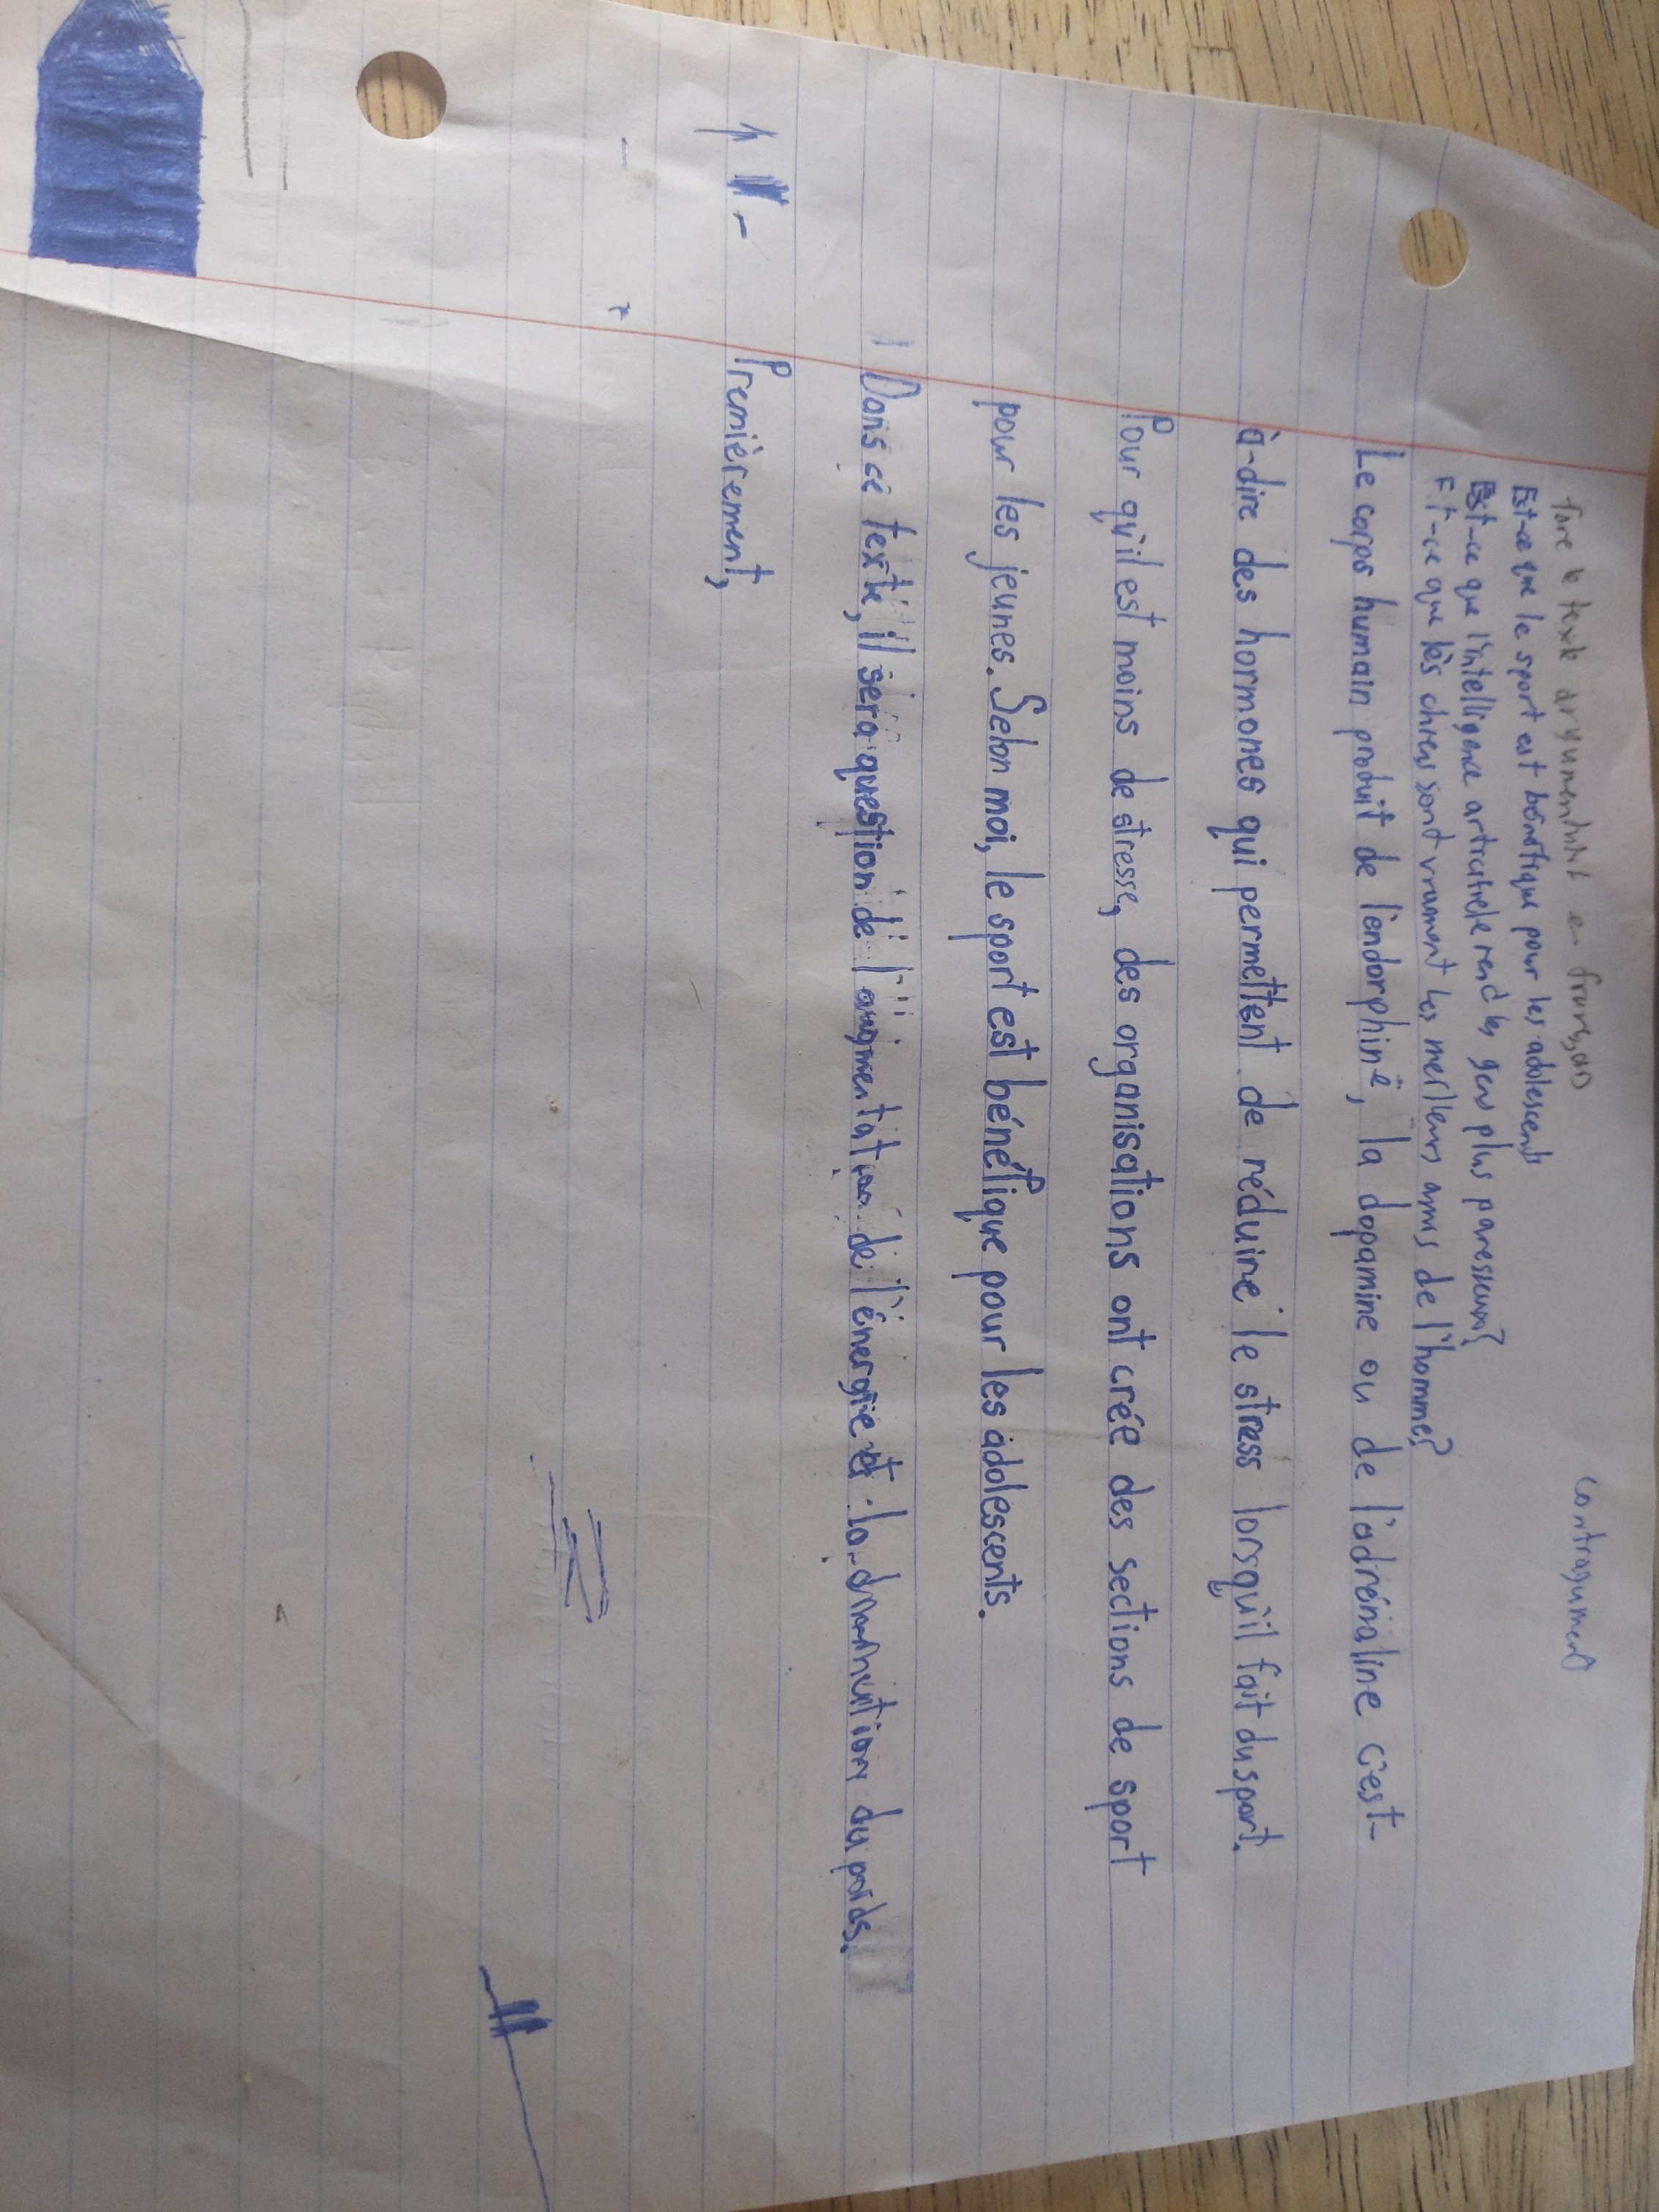 contragument
faire le texte argumentatif en français
Est-ce que le sport est bénéfique pour les adolescents
Est-ce que l'intelligence artificielle rend les gens plus paresseux?
Est-ce que les chiens sont vraiment les meilleurs amis de l'homme?
Le corps humain produit de l'endorphine, la dopamine ou de l'adrénaline c'est-
à-dire des hormones qui permettent de réduire le stress lorsqu'il fait du sport.
Pour qu'il est moins de stresse, des organisations ont crée des sections de sport
pour les jeunes. Selon moi, le sport est bénéfique pour les adolescents.
Dans ce texte, il sera question de l'augmentation de l'énergie et la diminution du poids.
Premièrement,